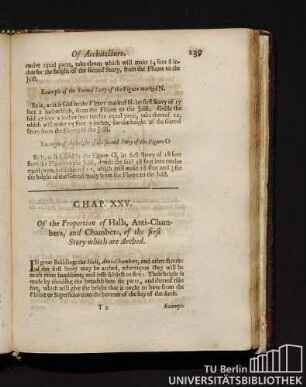 Of Architecture. 139
twelve equal parts, take eleven which will make 14 foot 8 in-
ches for the height of the second Story, from the Floore to the
Joist.
Example of the second Story of the Figure marked N.
But, as it is said in the Figure marked N. the first Story of 17
foot 2 inches, from the Floore to the Joist, divide the
said 17 foot 2 inches into twelve equal parts, take thereof 11,
which will make 15 foot inches, for the height of the second
Story from the Floore to the Joist.
Example of the height of the second Story of the Figure O
But, as it is said in the Figure O, the first Story of 18 foot
from the Floore to the Joist, divide the said 18 foot into twelve
equal parts, take thereof 11, which will make 16 foot and 3
for the height of the second Story from the Floore to the Joist.
CHAP. XXV.
Of the Proportion of Halls, Anti-Cham-
bers, and Chambers, of the first
Story which are Arched.
IN great Buildings the Hall, Anti-Chamber, and other Rooms
of the first Story may be arched, whereupon they will be
much more handsome, and less subject to fire: Their height is
made by dividing the breadth into six parts, and thereof take
five, which will give the height that it ought to have from
Floore or Superficies unto the bottom of the key of the Arch.
T 2 Example
TU Berlin
UNIVERSITÄTSBIBLIOTHEK